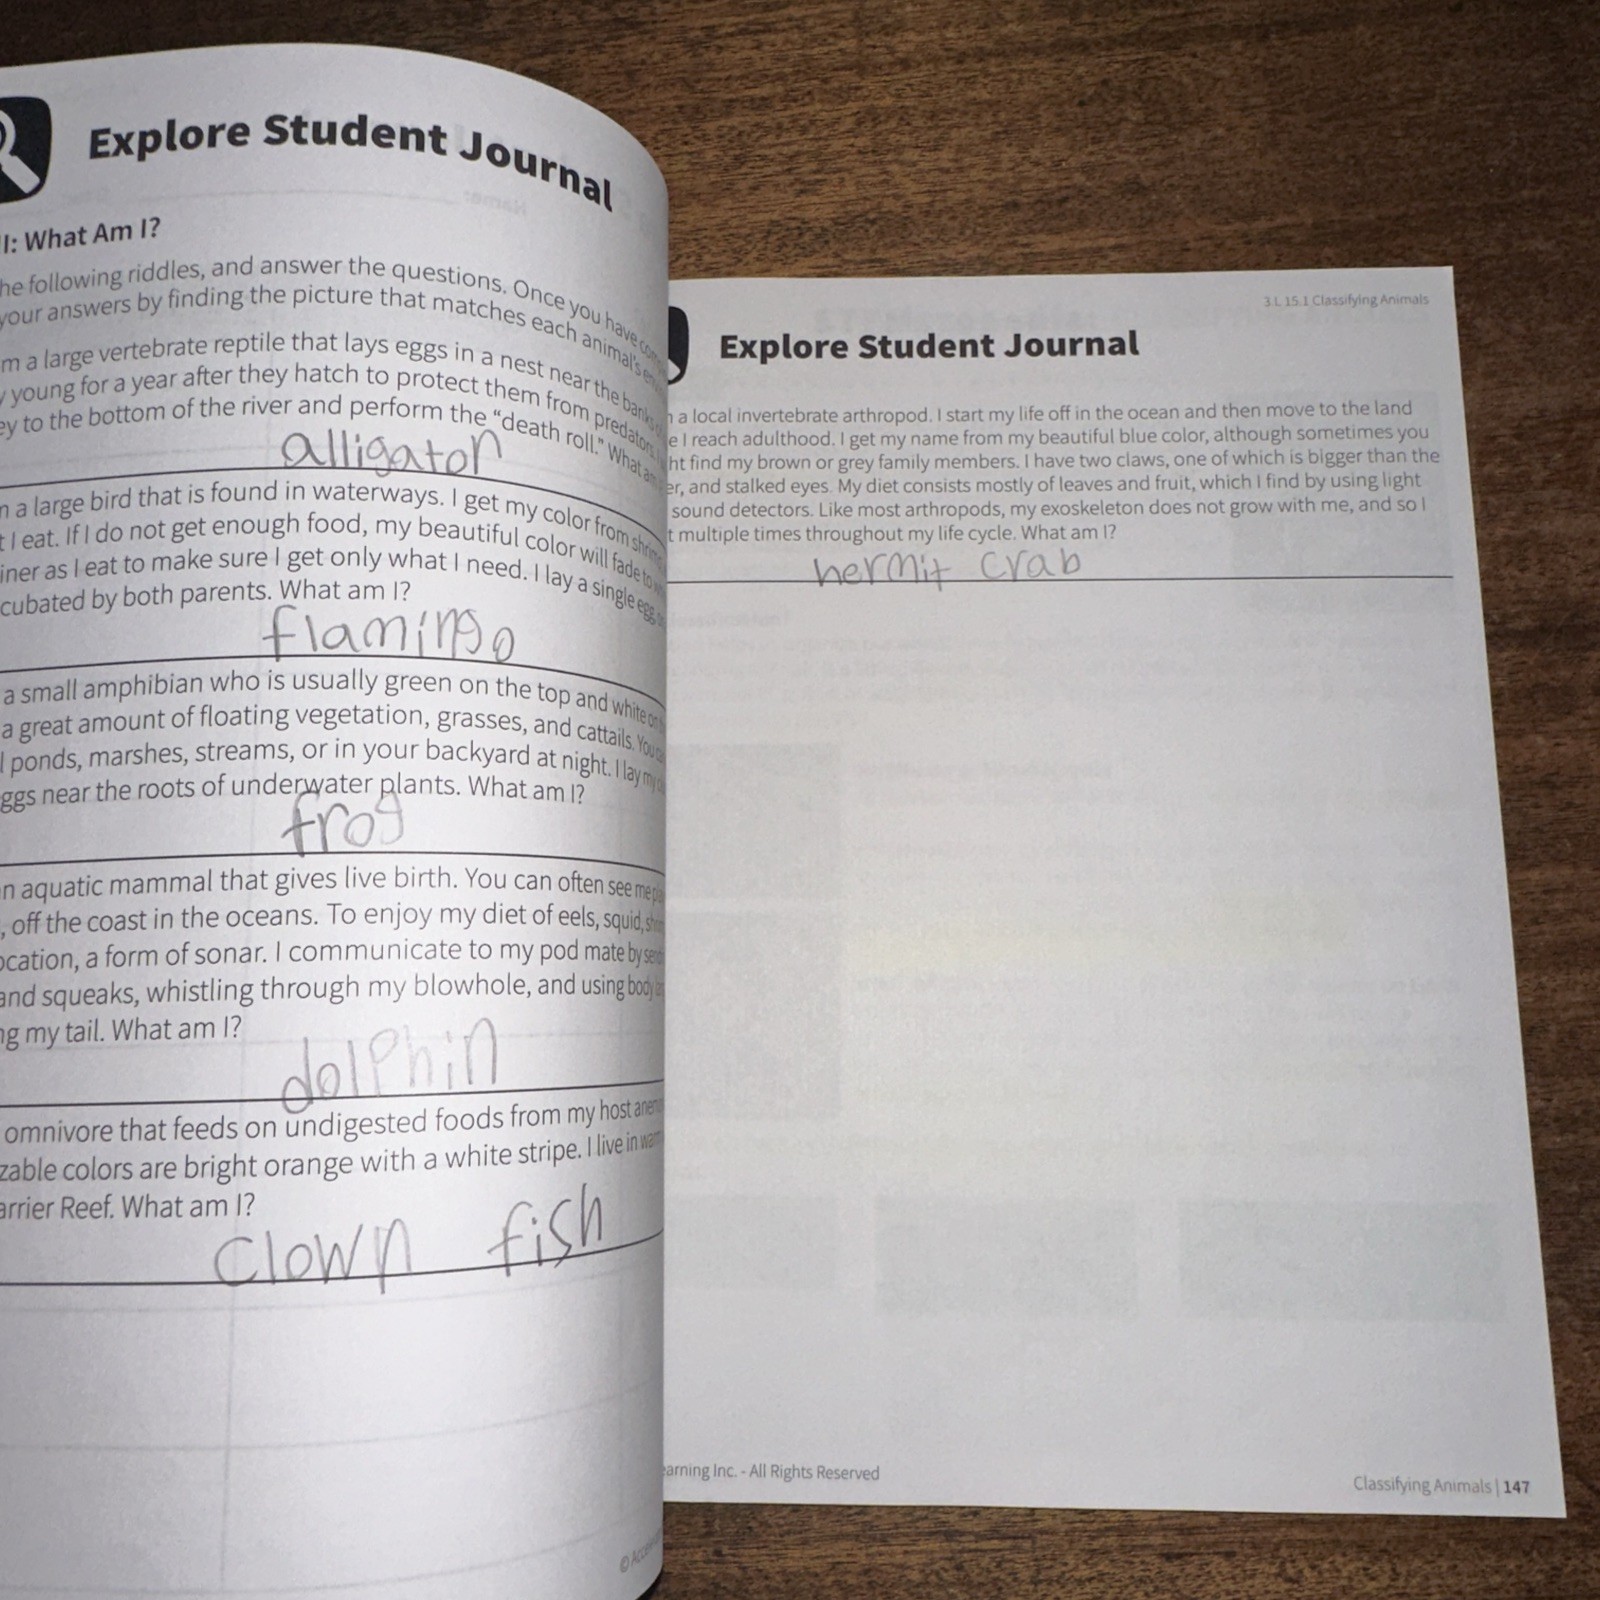 Explore Student Journal
I: What Am I?
he following riddles, and answer the questions. Once you have
your answers by finding the picture that matches each animal's
m a large vertebrate reptile that lays eggs in a nest near the banks
y young for a year after they hatch to protect them from predators.
ey to the bottom of the river and perform the “death roll.” What am
alligator
n a large bird that is found in waterways. I get my color from shrimp
t I eat. If I do not get enough food, my beautiful color will fade to
iner as I eat to make sure I get only what I need. I lay a single egg
cubated by both parents. What am I?
flamingo
a small amphibian who is usually green on the top and white on
a great amount of floating vegetation, grasses, and cattails. You
l ponds, marshes, streams, or in your backyard at night. I lay my
ggs near the roots of underwater plants. What am I?
frog
n aquatic mammal that gives live birth. You can often see me
, off the coast in the oceans. To enjoy my diet of eels, squid,
ocation, a form of sonar. I communicate to my pod mate by
and squeaks, whistling through my blowhole, and using body
ng my tail. What am I?
dolphin
omnivore that feeds on undigested foods from my host
zable colors are bright orange with a white stripe. I live in
arrier Reef. What am I?
Clown fish
3 L 15.1 Classifying Animals
Explore Student Journal
a local invertebrate arthropod. I start my life off in the ocean and then move to the land
e I reach adulthood. I get my name from my beautiful blue color, although sometimes you
ht find my brown or grey family members. I have two claws, one of which is bigger than the
er, and stalked eyes. My diet consists mostly of leaves and fruit, which I find by using light
sound detectors. Like most arthropods, my exoskeleton does not grow with me, and so I
t multiple times throughout my life cycle. What am I?
hermit crab
earning Inc. - All Rights Reserved
Classifying Animals | 147